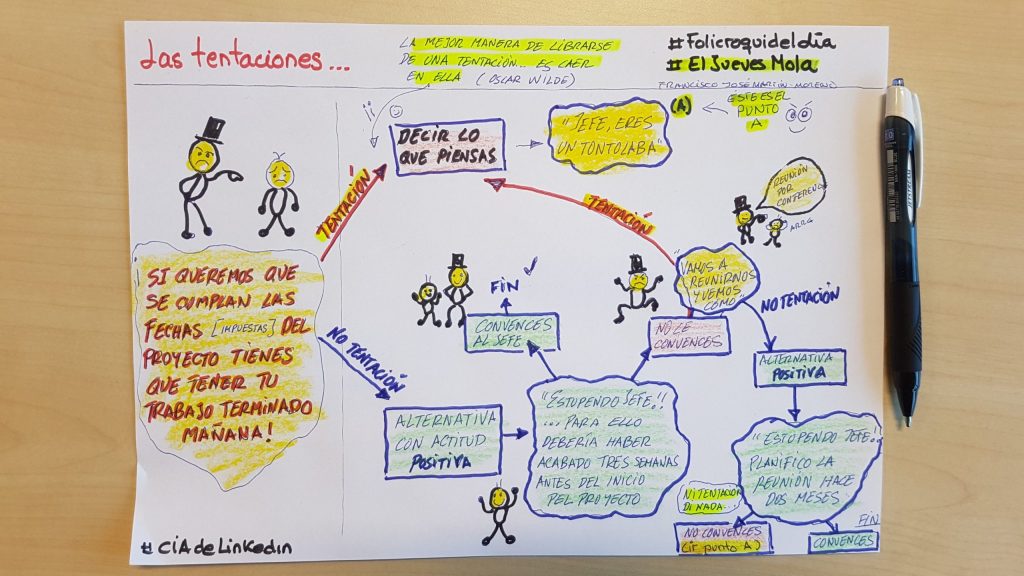 Las tentaciones...
LA MEJOR MANERA DE LIBRARSE
DE UNA TENTACIÓN... ES CAER
EN ELLA (OSCAR WILDE)
#Folicroquideldía
#El Jueves Mola
FRANCISCO JOSÉ MARTÍN MORENO
(A)
ESTE ES EL
PUNTO
A
DECIR LO
QUE PIENSAS
"JEFE, ERES
UN TONTOLABA"
TENTACIÓN
TENTACIÓN
REUNIÓN
POR
CONFERENCE
ARRG
SI QUEREMOS QUE
SE CUMPLAN LAS
FECHAS [IMPUESTAS] DEL
PROYECTO TIENES
QUE TENER TU
TRABAJO TERMINADO
MAÑANA!
FIN
CONVENCES
AL JEFE
"VAMOS A
REUNIRNOS
Y VEMOS
COMO"
NO LE
CONVENCES
NO TENTACIÓN
NO TENTACIÓN
ALTERNATIVA
POSITIVA
ALTERNATIVA
CON ACTITUD
POSITIVA
"ESTUPENDO JEFE!!
... PARA ELLO
DEBERÍA HABER
ACABADO TRES SEMANAS
ANTES DEL INICIO
DEL PROYECTO
"ESTUPENDO JEFE!!
PLANIFICO LA
REUNIÓN HACE
DOS MESES
NI TENTACION
NI NADA...
NO CONVENCES
(ir punto A)
FIN
CONVENCES
#CIAdeLinkedin